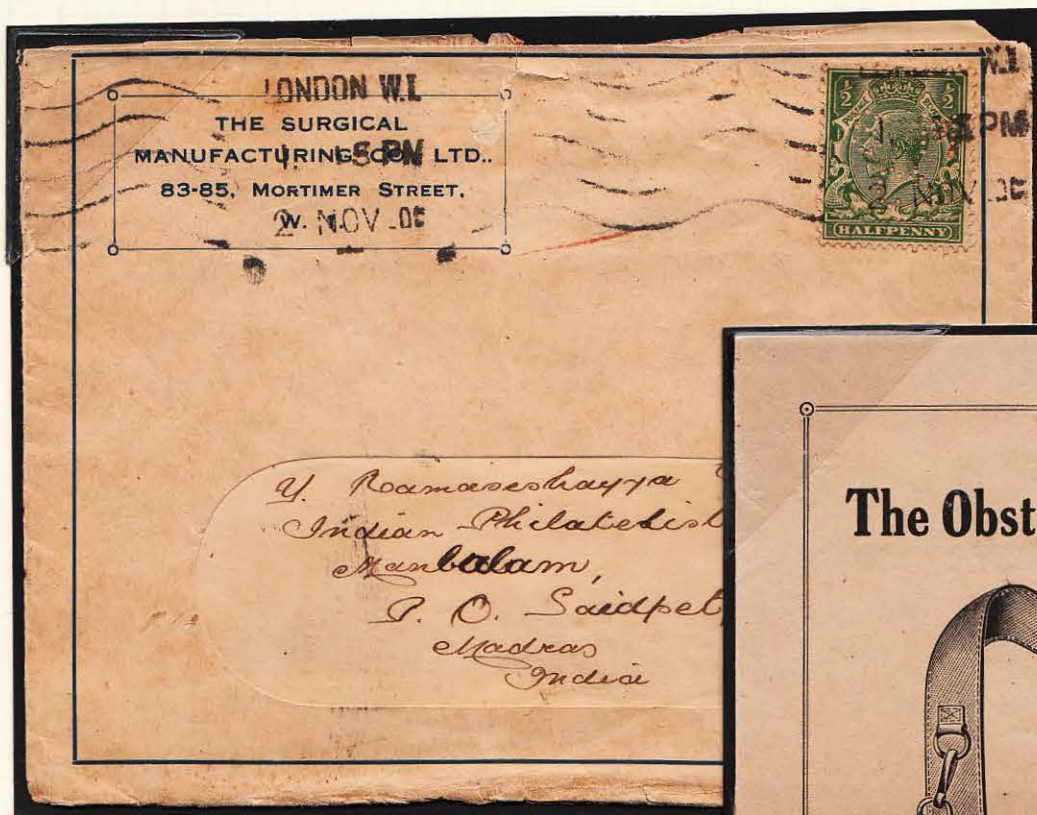 LONDON W.1
THE SURGICAL
MANUFACTURING CO. LTD..
83-85, MORTIMER STREET,
W. 1.
5 PM
2 NOV
W.1
5 PM
2 NOV
½ ½
POSTAGE
HALFPENNY
Y. Ramaseshayya
Indian Philatelist
Manbalam,
P. O. Saidpet,
Madras
India
The Obst